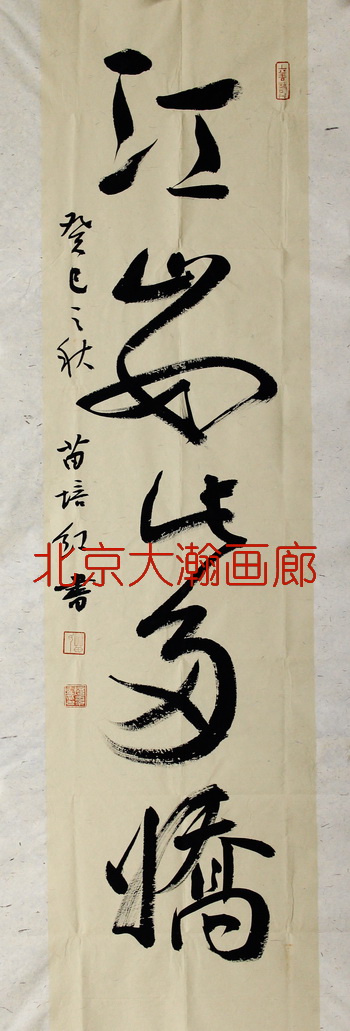 江山如此多娇
癸巳之秋 苗培红书
北京大瀚画廊